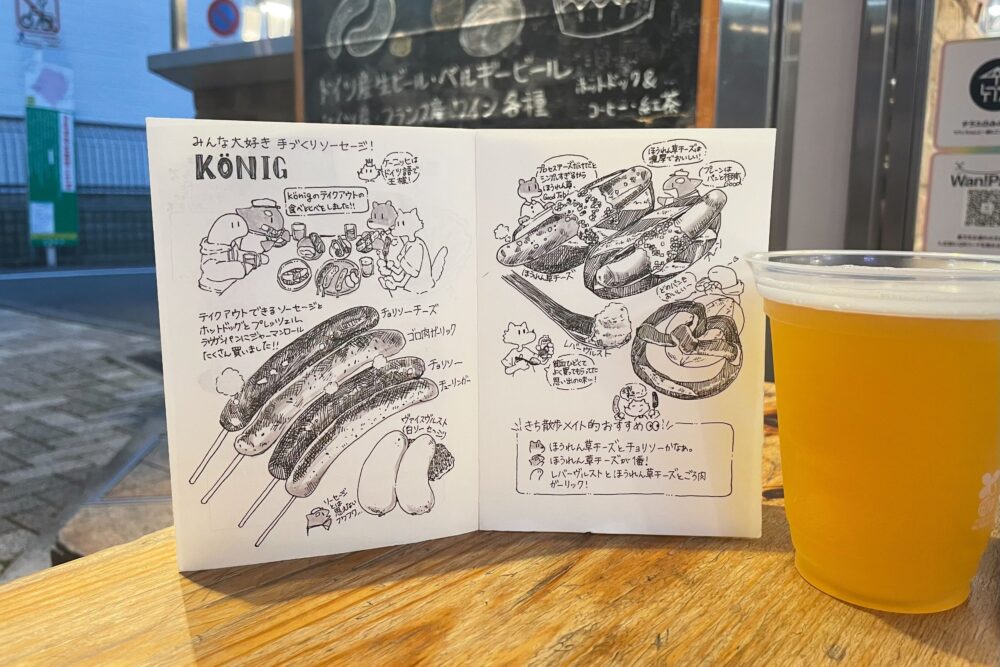 ドイツ産生ビール・ベルギービール
フランス産ワイン各種
ホットドック&
コーヒー・紅茶
みんな大好き 手づくりソーセージ!
KÖNIG
ケーニッヒは
ドイツ語で
王様!
königのテイクアウトの
食べ比べをしました!!
テイクアウトできるソーセージと
ホットドッグとプレッツェル、
ラウゲンパンにジャーマンロール
たくさん買いました!!
チョリソーチーズ
ゴロ肉ガーリック
チョリソー
チューリンガー
ヴァイスヴルスト
(白ソーセージ)
ソーセージ
とは
思えない
フワフワ…
プロセスチーズだけだと
シンプルすぎるから
ほうれん草
Good Job!
ほうれん草チーズは
濃厚でおいしい!
プレーンは
パンと相性
Good
ほうれん草チーズ
どのパンも
おいしい〜
レバーヴルスト
よく買ってもらってた
思い出の味…!
きち散歩メイト的おすすめ
ほうれん草チーズとチョリソーかなぁ。
ほうれん草チーズが1番!
レバーヴルストとほうれん草チーズとごろ肉
ガーリック!
Wan!Pa